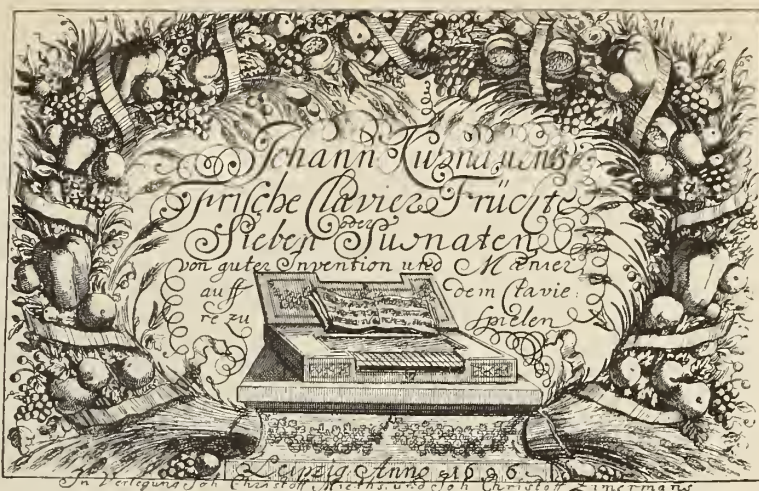 Johann Kuhnauens
Frische Clavier Früchte
oder
Sieben Suonaten
von guter Invention und Manier
auff dem Clavie:
re zu spielen
Leipzig Anno 1696
In Verlegung Joh Christoff Mieths, und Joh Christoff Zimermans